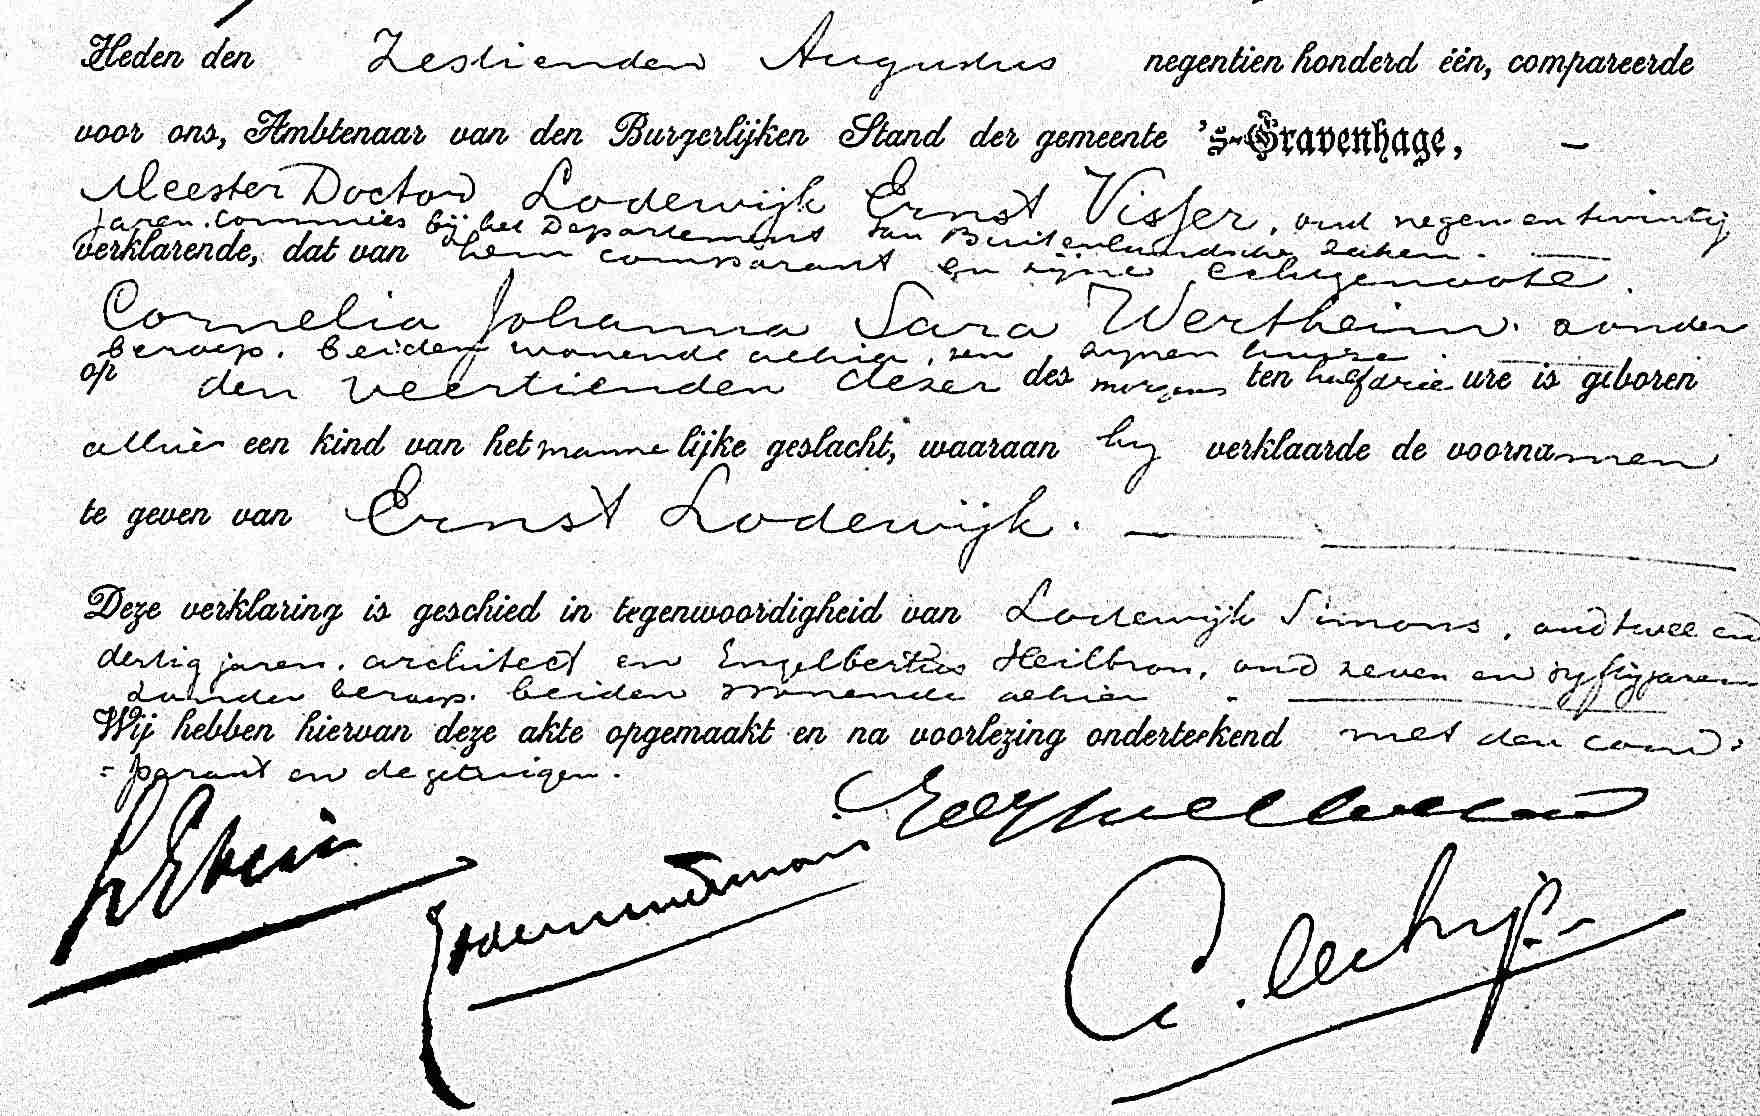 Heden den Zestienden Augustus negentien honderd één, compareerde
voor ons, Ambtenaar van den Burgerlijken Stand der gemeente 's-Gravenhage, –
Meester Doctor Lodewijk Ernst Visser, oud negen en twintig
jaren, commies bij het Departement van Buitenlandsche Zaken. —
verklarende, dat van hem comparant en zijne echtgenoote.
Cornelia Johanna Sara Wertheim, zonder
beroep, beiden wonende alhier, ten zijnen huize. —
op den veertienden dezer des morgens ten half drie ure is geboren
alhier een kind van het mannelijke geslacht, waaraan hij verklaarde de voornamen
te geven van Ernst Lodewijk. —
Deze verklaring is geschied in tegenwoordigheid van Lodewijk Simons, oud twee en
dertig jaren, architect en Engelbertus Heilbron, oud zeven en vyftig jaren
zonder beroep, beiden wonende alhier —
Wij hebben hiervan deze akte opgemaakt en na voorlezing onderteekend met den com=
=parant en de getuigen.